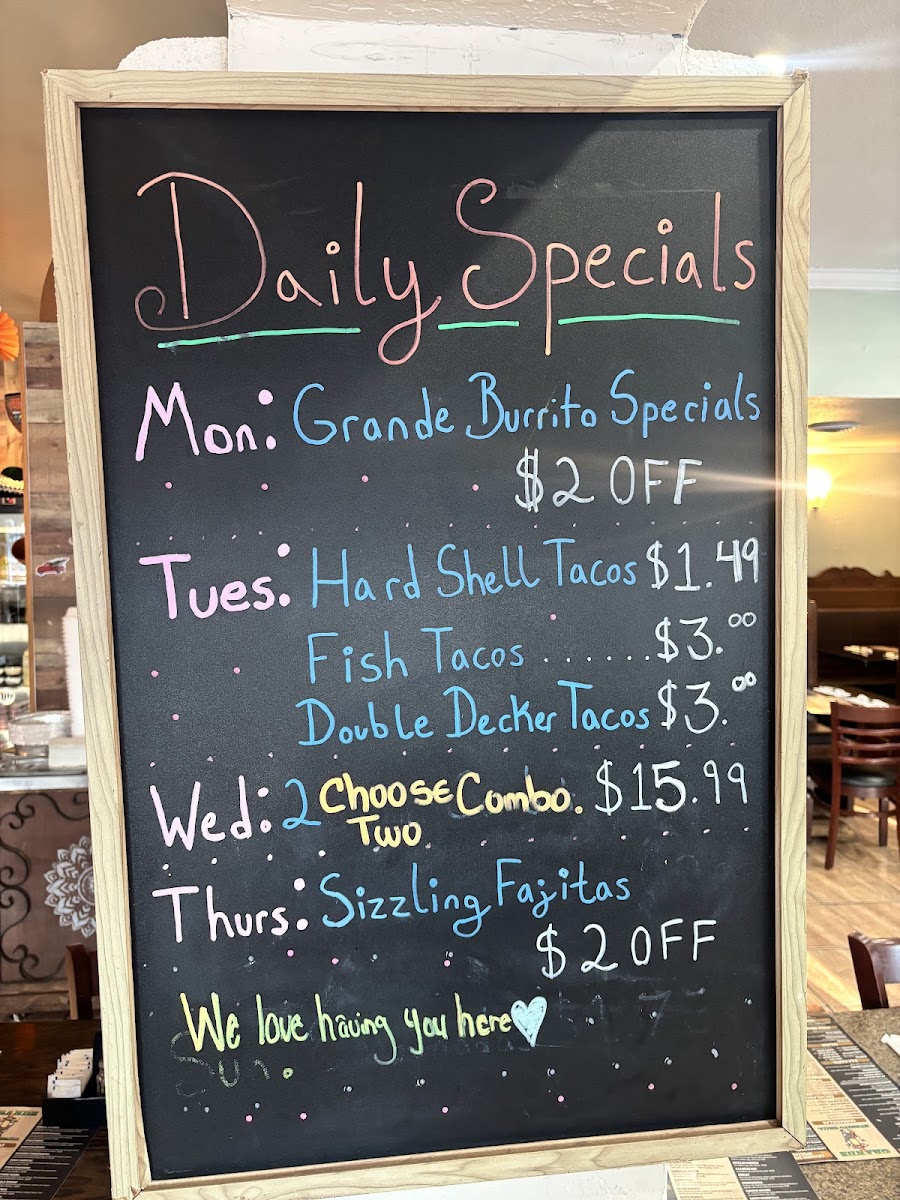 Daily Specials
Mon: Grande Burrito Specials
$2 OFF
Tues: Hard Shell Tacos $1.49
Fish Tacos ....... $3.00
Double Decker Tacos $3.00
Wed: 2 Choose Combo. $15.99
Two
Thurs: Sizzling Fajitas
$2 OFF
We love having you here
Sun.